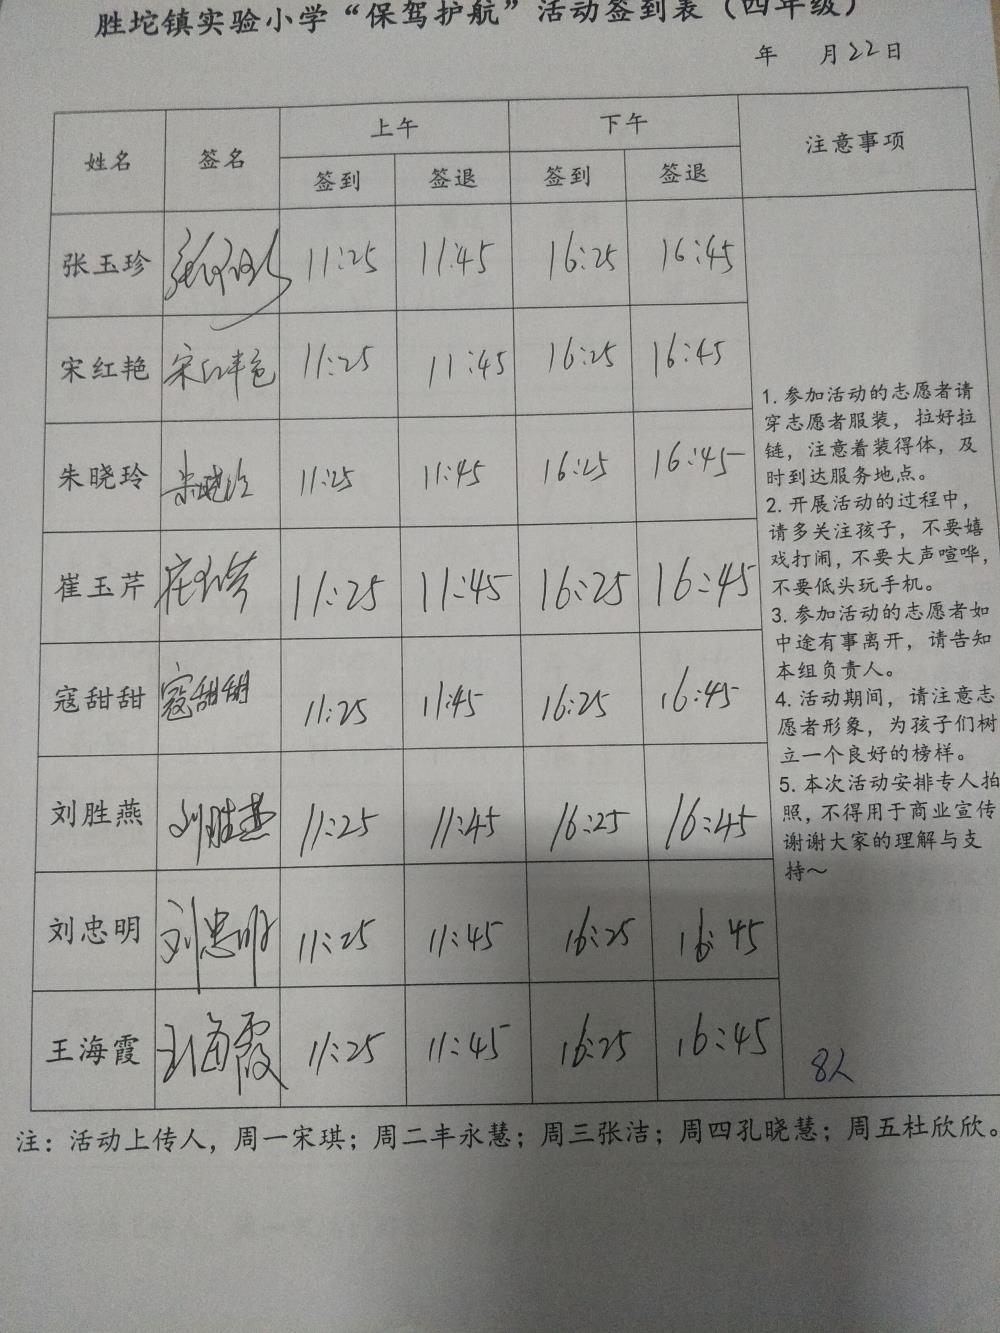 胜坨镇实验小学“保驾护航”活动签到表（四年级）
年 月22日
姓名 签名 上午 下午 注意事项
签到 签退 签到 签退
张玉珍 11:25 11:45 16:25 16:45
宋红艳 宋红艳 11:25 11:45 16:25 16:45
朱晓玲 朱晓玲 11:25 11:45 16:25 16:45
崔玉芹 崔玉芹 11:25 11:45 16:25 16:45
寇甜甜 寇甜甜 11:25 11:45 16:25 16:45
刘胜燕 刘胜燕 11:25 11:45 16:25 16:45
刘忠明 刘忠明 11:25 11:45 16:25 16:45
王海霞 王海霞 11:25 11:45 16:25 16:45
1. 参加活动的志愿者请
穿志愿者服装，拉好拉
链，注意着装得体，及
时到达服务地点。
2. 开展活动的过程中，
请多关注孩子，不要嬉
戏打闹，不要大声喧哗，
不要低头玩手机。
3. 参加活动的志愿者如
中途有事离开，请告知
本组负责人。
4. 活动期间，请注意志
愿者形象，为孩子们树
立一个良好的榜样。
5. 本次活动安排专人拍
照，不得用于商业宣传
谢谢大家的理解与支
持～
8人
注：活动上传人，周一宋琪；周二丰永慧；周三张洁；周四孔晓慧；周五杜欣欣。